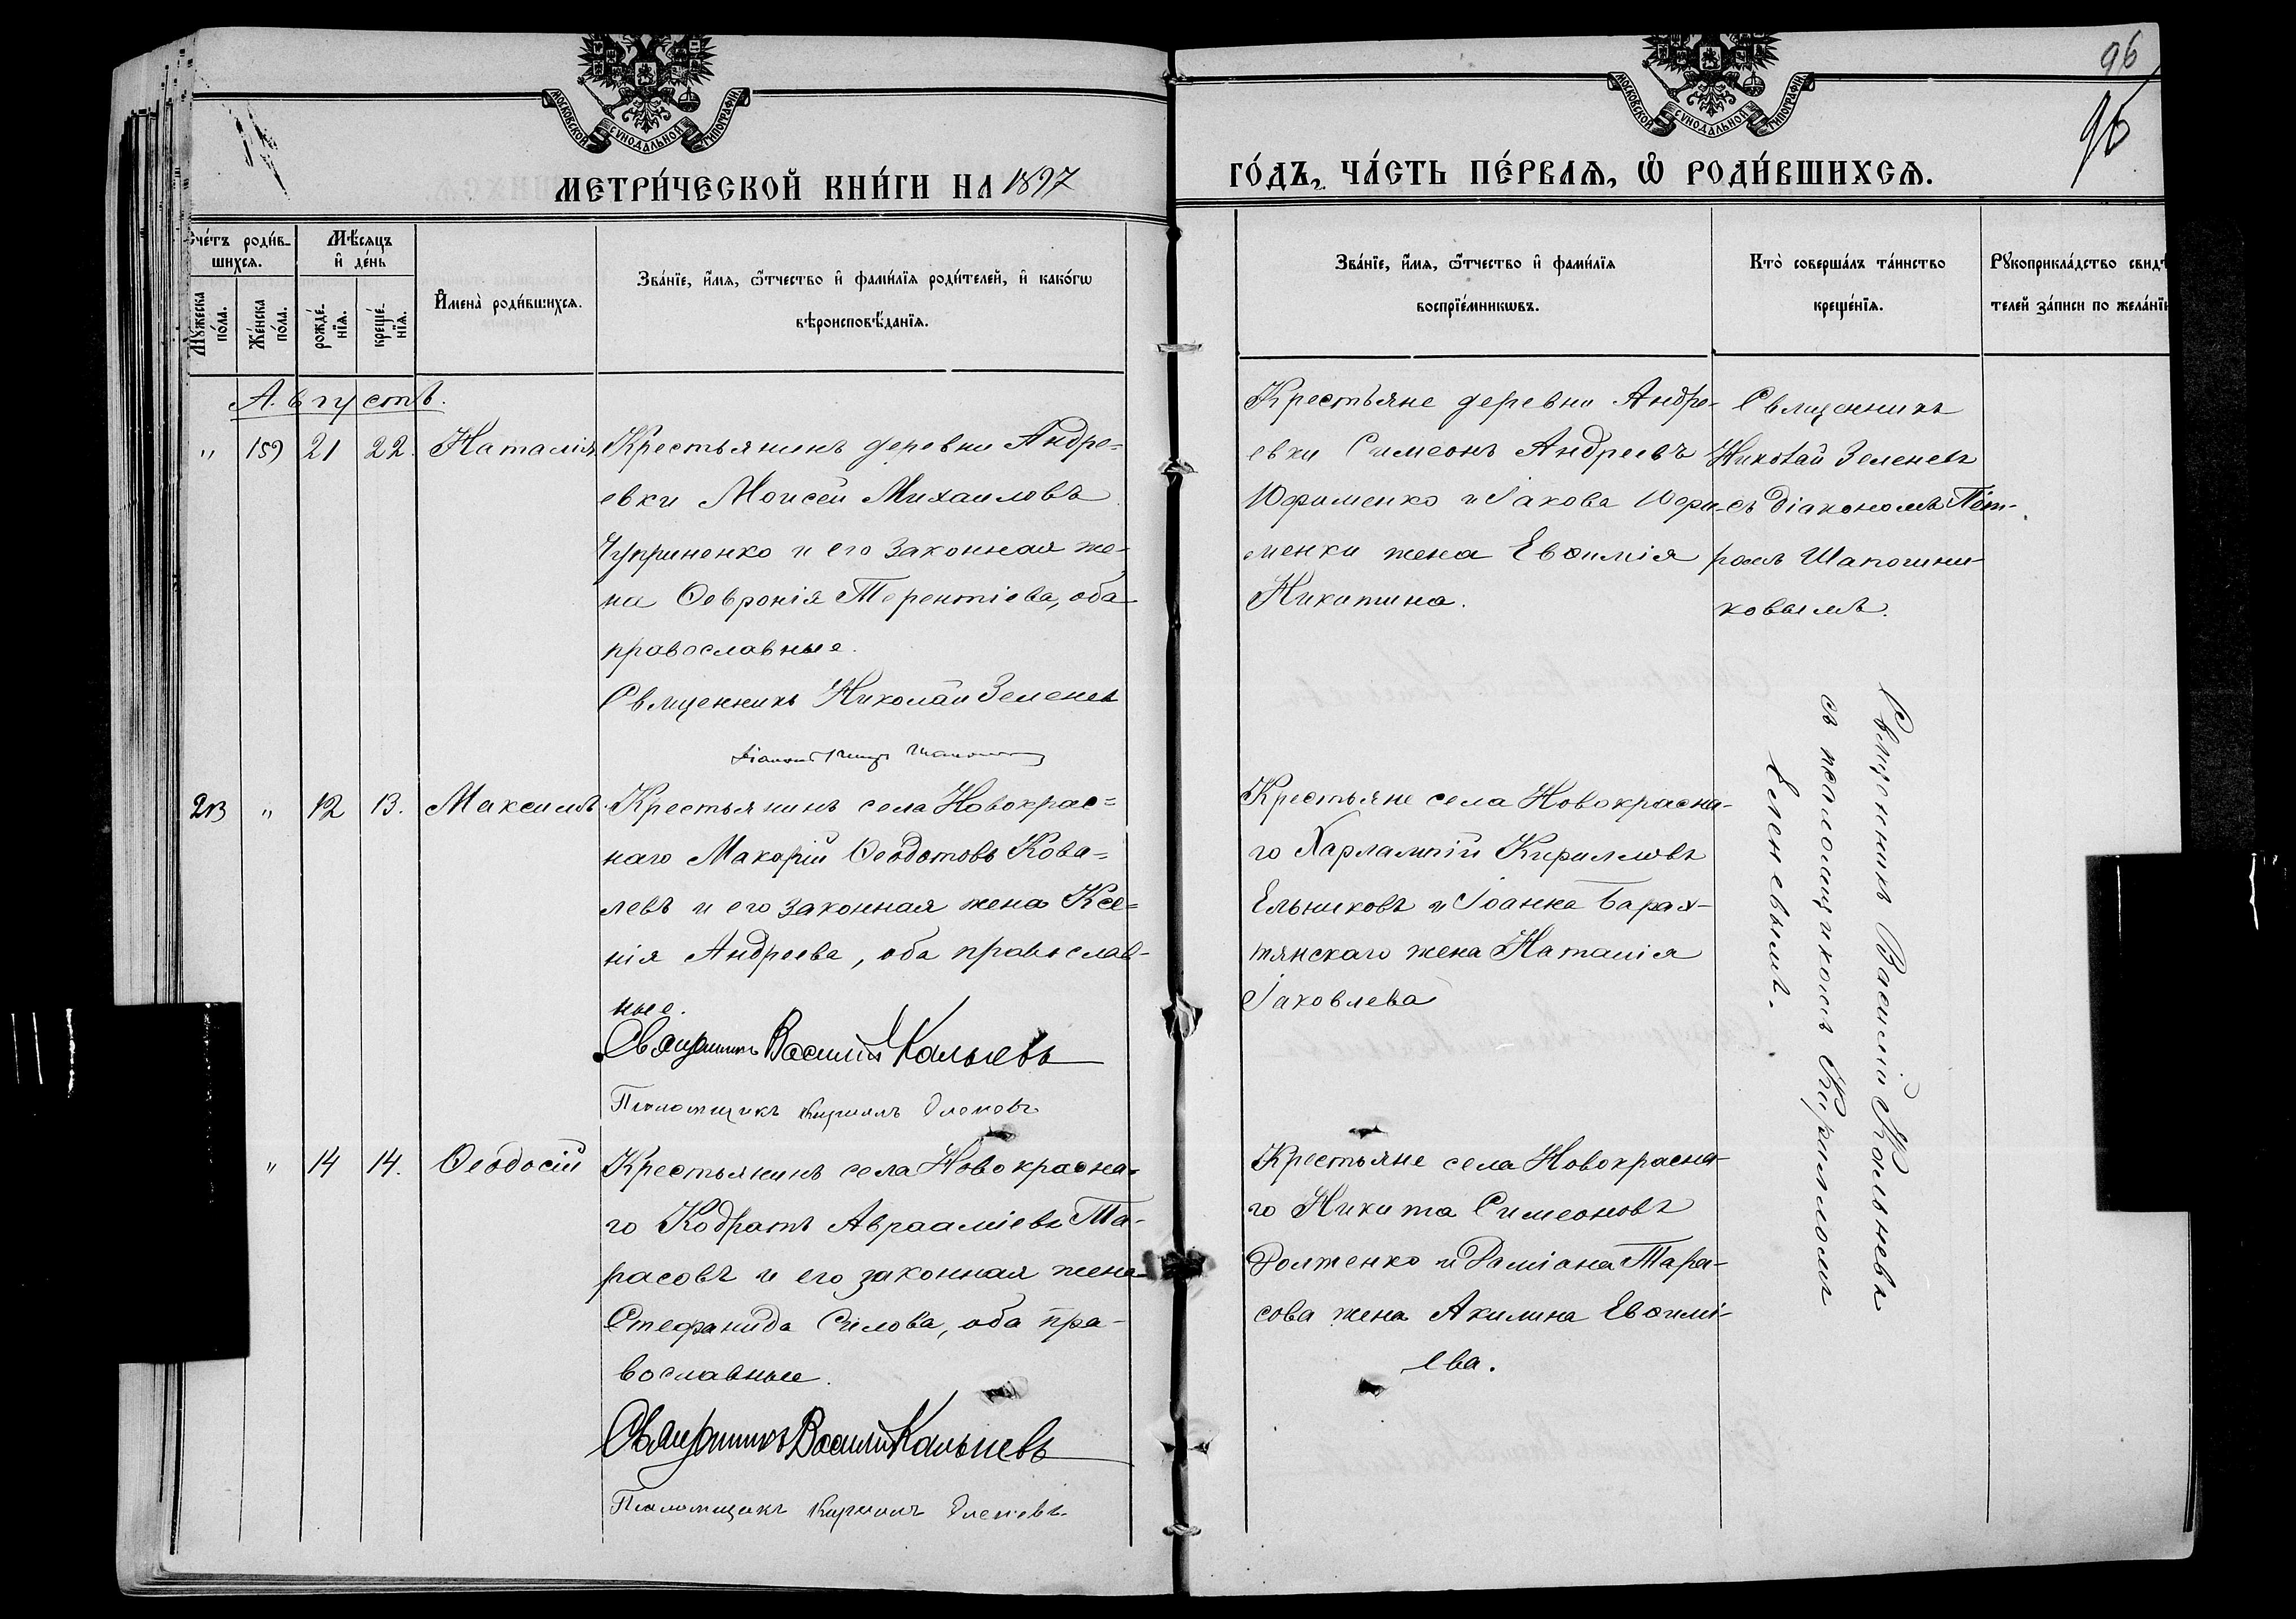 96
96
МОСКОВСКОЙ СѴНОДАЛЬНОЙ ТИПОГРАФІИ
МОСКОВСКОЙ СѴНОДАЛЬНОЙ ТИПОГРАФІИ
МЕТРИ́ЧЕСКОЙ КНИ́ГИ НА 1897
ГО́ДЪ, ЧА́СТЬ ПЕ́РВАЯ, Ѡ҆ РОДИ́ВШИХСЯ.
Счéтъ роди́в-
шихся.
Мꙋ́жеска по́ла.
Же́нска по́ла.
Мѣ́сяцъ
и҆ де́нь
рожде́-нїя.
креще́-нїя.
И҆мена̀ роди́вшихся.
Зва́нїе, и҆́мя, ѻ҆́тчество и҆ фами́лїя роди́телей, и҆ како́гѡ
вѣроисповѣ́данїя.
Зва́нїе, и҆́мя, ѻ҆́тчество и҆ фами́лїя
воспрїе́мникѡвъ.
Кто̀ соверша́лъ та́инство
креще́нїя.
Рꙋкоприкла́дство свидѣ
телей за́писи по жела́нїю
Августъ.
" 159 21 22. Наталія
Крестьянинъ деревни Андре=
евки Моисей Михаиловъ
Чуприненко и его законная же-
на Ѳевронія Терентіева, оба
православные.
Священникъ Николай Зеленевъ
Крестьяне деревни Андре-
евки Симеонъ Андреевъ
Юфименко и Іакова Юфи-
менки жена Евѳимія
Никитина.
Священникъ
Николай Зеленевъ
съ діакономъ Пет-
ромъ Шапошни-
ковымъ.
213 " 12 13. Максимъ.
Крестьянинъ села Новокрас=
наго Макарій Ѳеодотовъ Кова=
левъ и его законная жена Ксе=
нія Андреева, оба православ-
ные.
Священникъ Василій Кальневъ
Псаломщикъ Кириллъ Еленевъ
Крестьяне села Новокрасна-
го Харлампій Кирилловъ
Ельниковъ и Іоанна Барах-
тянскаго жена Наталія
Іаковлева
Священникъ Василій Кальневъ
съ псаломщикомъ Кирилломъ
Еленевымъ.
" 14 14. Ѳеодосій
Крестьянинъ села Новокрасна=
го Кодратъ Аврааміевъ Та-
расовъ и его законная жена
Стефанида Силова, оба пра-
вославные.
Священникъ Василій Кальневъ
Псаломщикъ Кириллъ Еленевъ.
Крестьяне села Новокрасна-
го Никита Симеоновъ
Долженко и Даміана Тара-
сова жена Акилина Евѳимі-
ева.